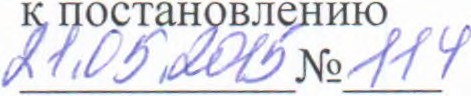 к постановлению
21.05.2015 № 114